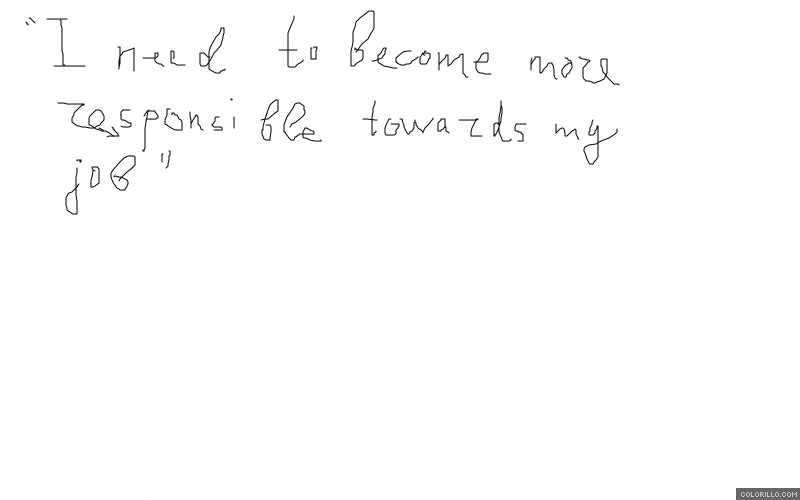 "I need to become more
responsible towards my
job"
COLORILLO.COM